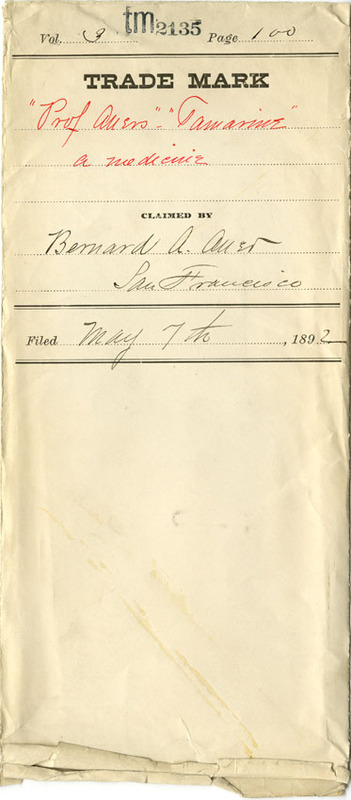 tm2135
Vol. 3 Page 100
TRADE MARK
"Prof Auers" - "Tamarine"
a medicine
CLAIMED BY
Bernard A. Auer
San Francisco
Filed May 7th, 1892